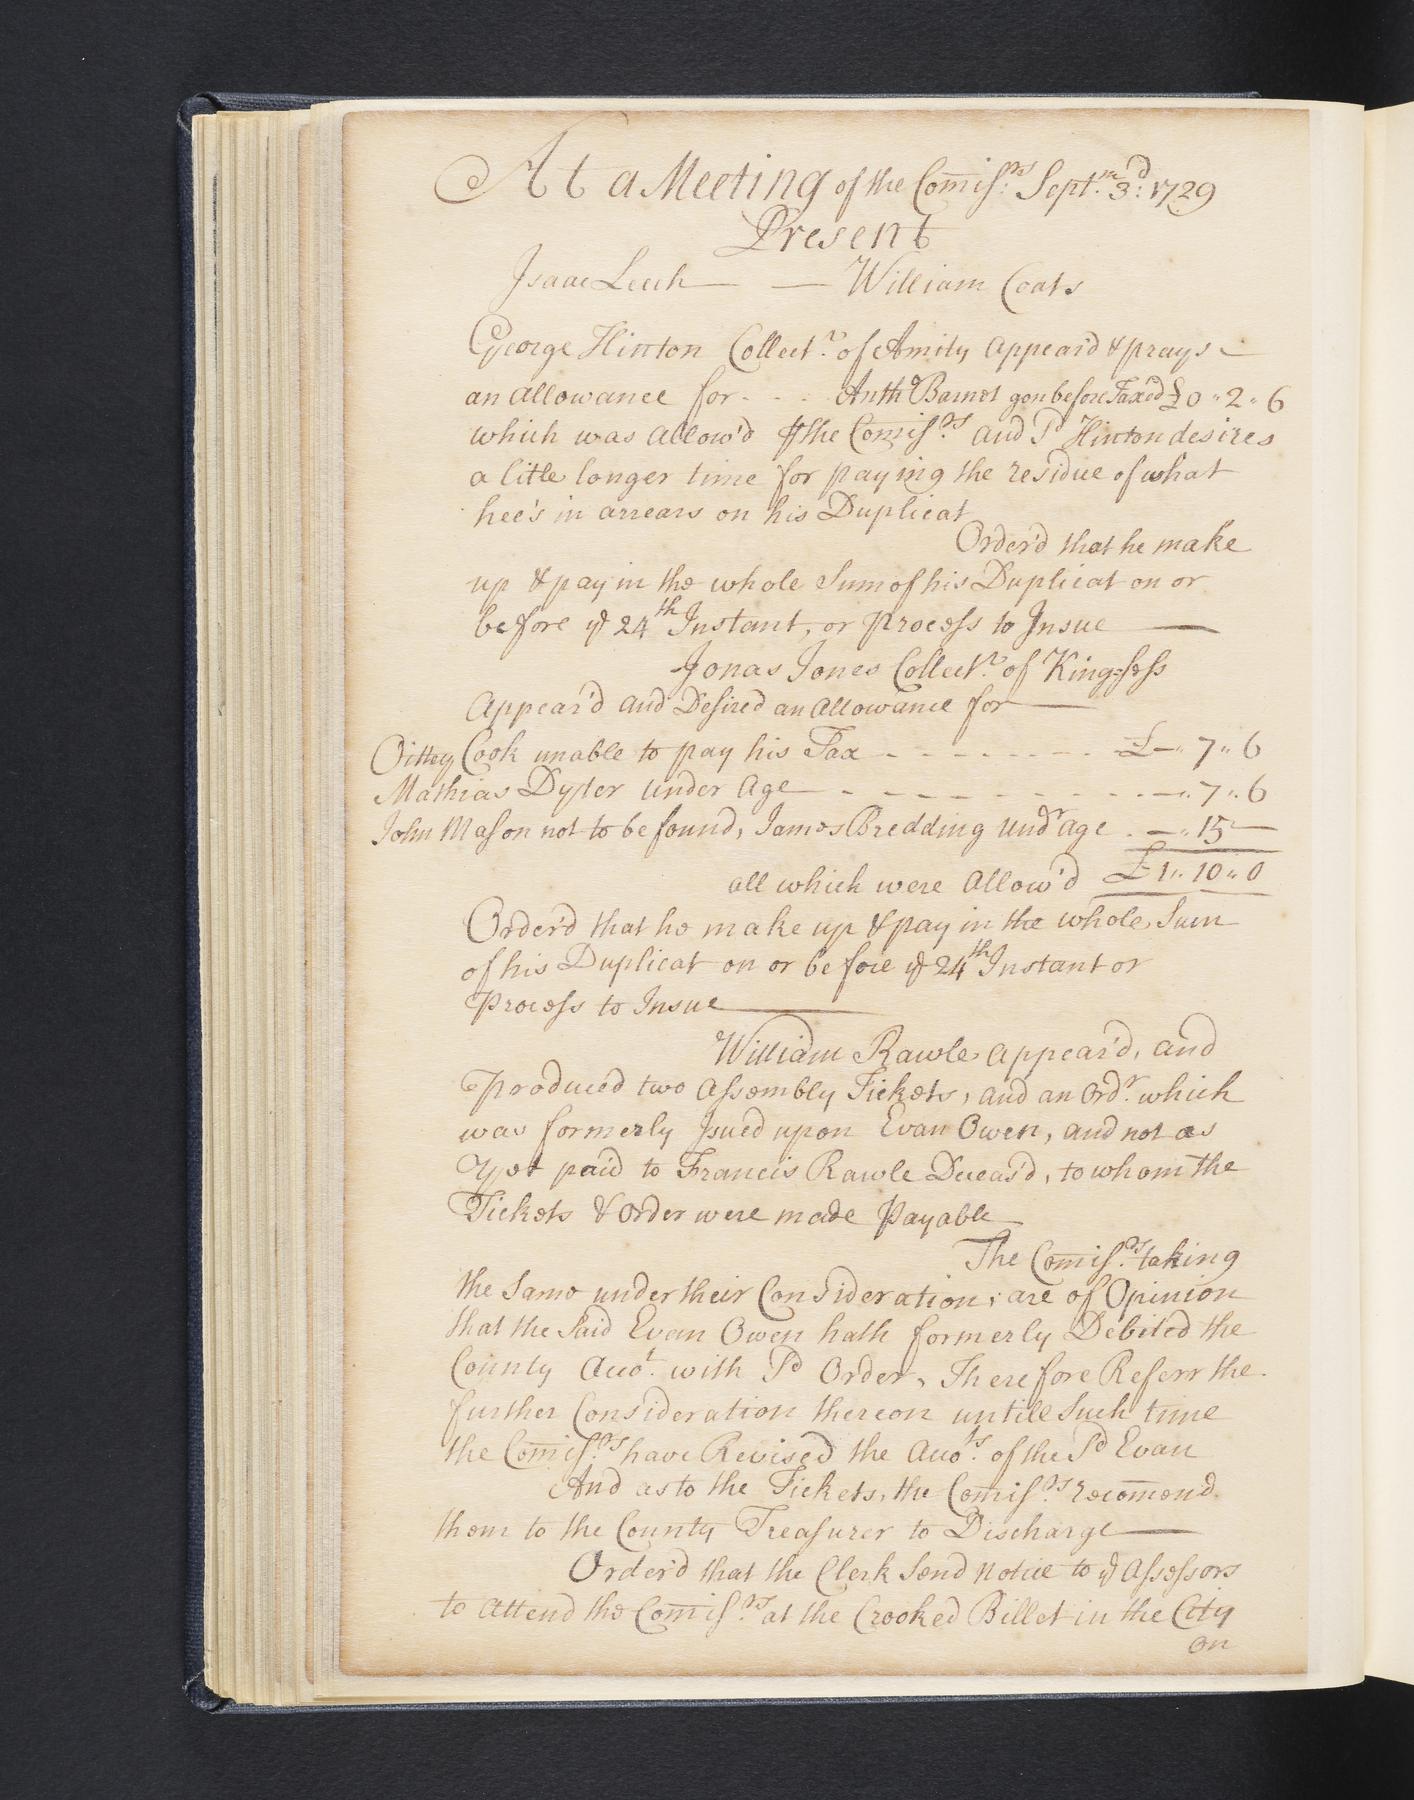 At a Meeting of the Comiss:rs Sept.m 3:d 1729
Present
Isaac Leech — — William Coats
George Hinton Collect.r of Amity Appear'd & prays
an Allowance for - - - Anth.o Barnet gon before Taxed £0 " 2 " 6
which was Allow'd ⅌ the Comiss.rs and Sd Hinton desires
a little longer time for paying the residue of what
hee's in arrears on his Duplicat
Order'd that he make
up & pay in the whole Sum of his Duplicat on or
before ye 24th Instant, or Process to Insue —
Jonas Jones Collect.r of King=sess
Appear'd and Desired an Allowance for —
Cook unable to pay his Tax - - - - - - - £— " 7 " 6
Mathias Dyter under Age — - - - - - - - — " 7 " 6
John Mason not to be found, James Bredding Undr age . — " 15 " —
all which were Allow'd £1 " 10 " 0
Order'd that he make up & pay in the whole Sum
of his Duplicat on or before ye 24th Instant or
Process to Insue —
William Rawle appear'd, and
produced two Assembly Tickets, and an Ord.r which
was formerly Isued upon Evan Owen, and not as
Yet paid to Francis Rawle Deceas'd, to whom the
Tickets & Order were made Payable —
The Comiss.rs taking
the Same under their Consideration; are of Opinion
that the Said Evan Owen hath formerly Debited the
County Acco.t with Sd Order, Therefore Referr the
further Consideration thereon untill Such time
the Comiss.rs have Revised the Acco.ts of the Sd Evan
And as to the Tickets, the Comiss.rs recomend
them to the County Treasurer to Discharge —
Order'd that the Clerk Send notice to ye Assessors
to Attend the Comiss.rs at the Crooked Billet in the City
on